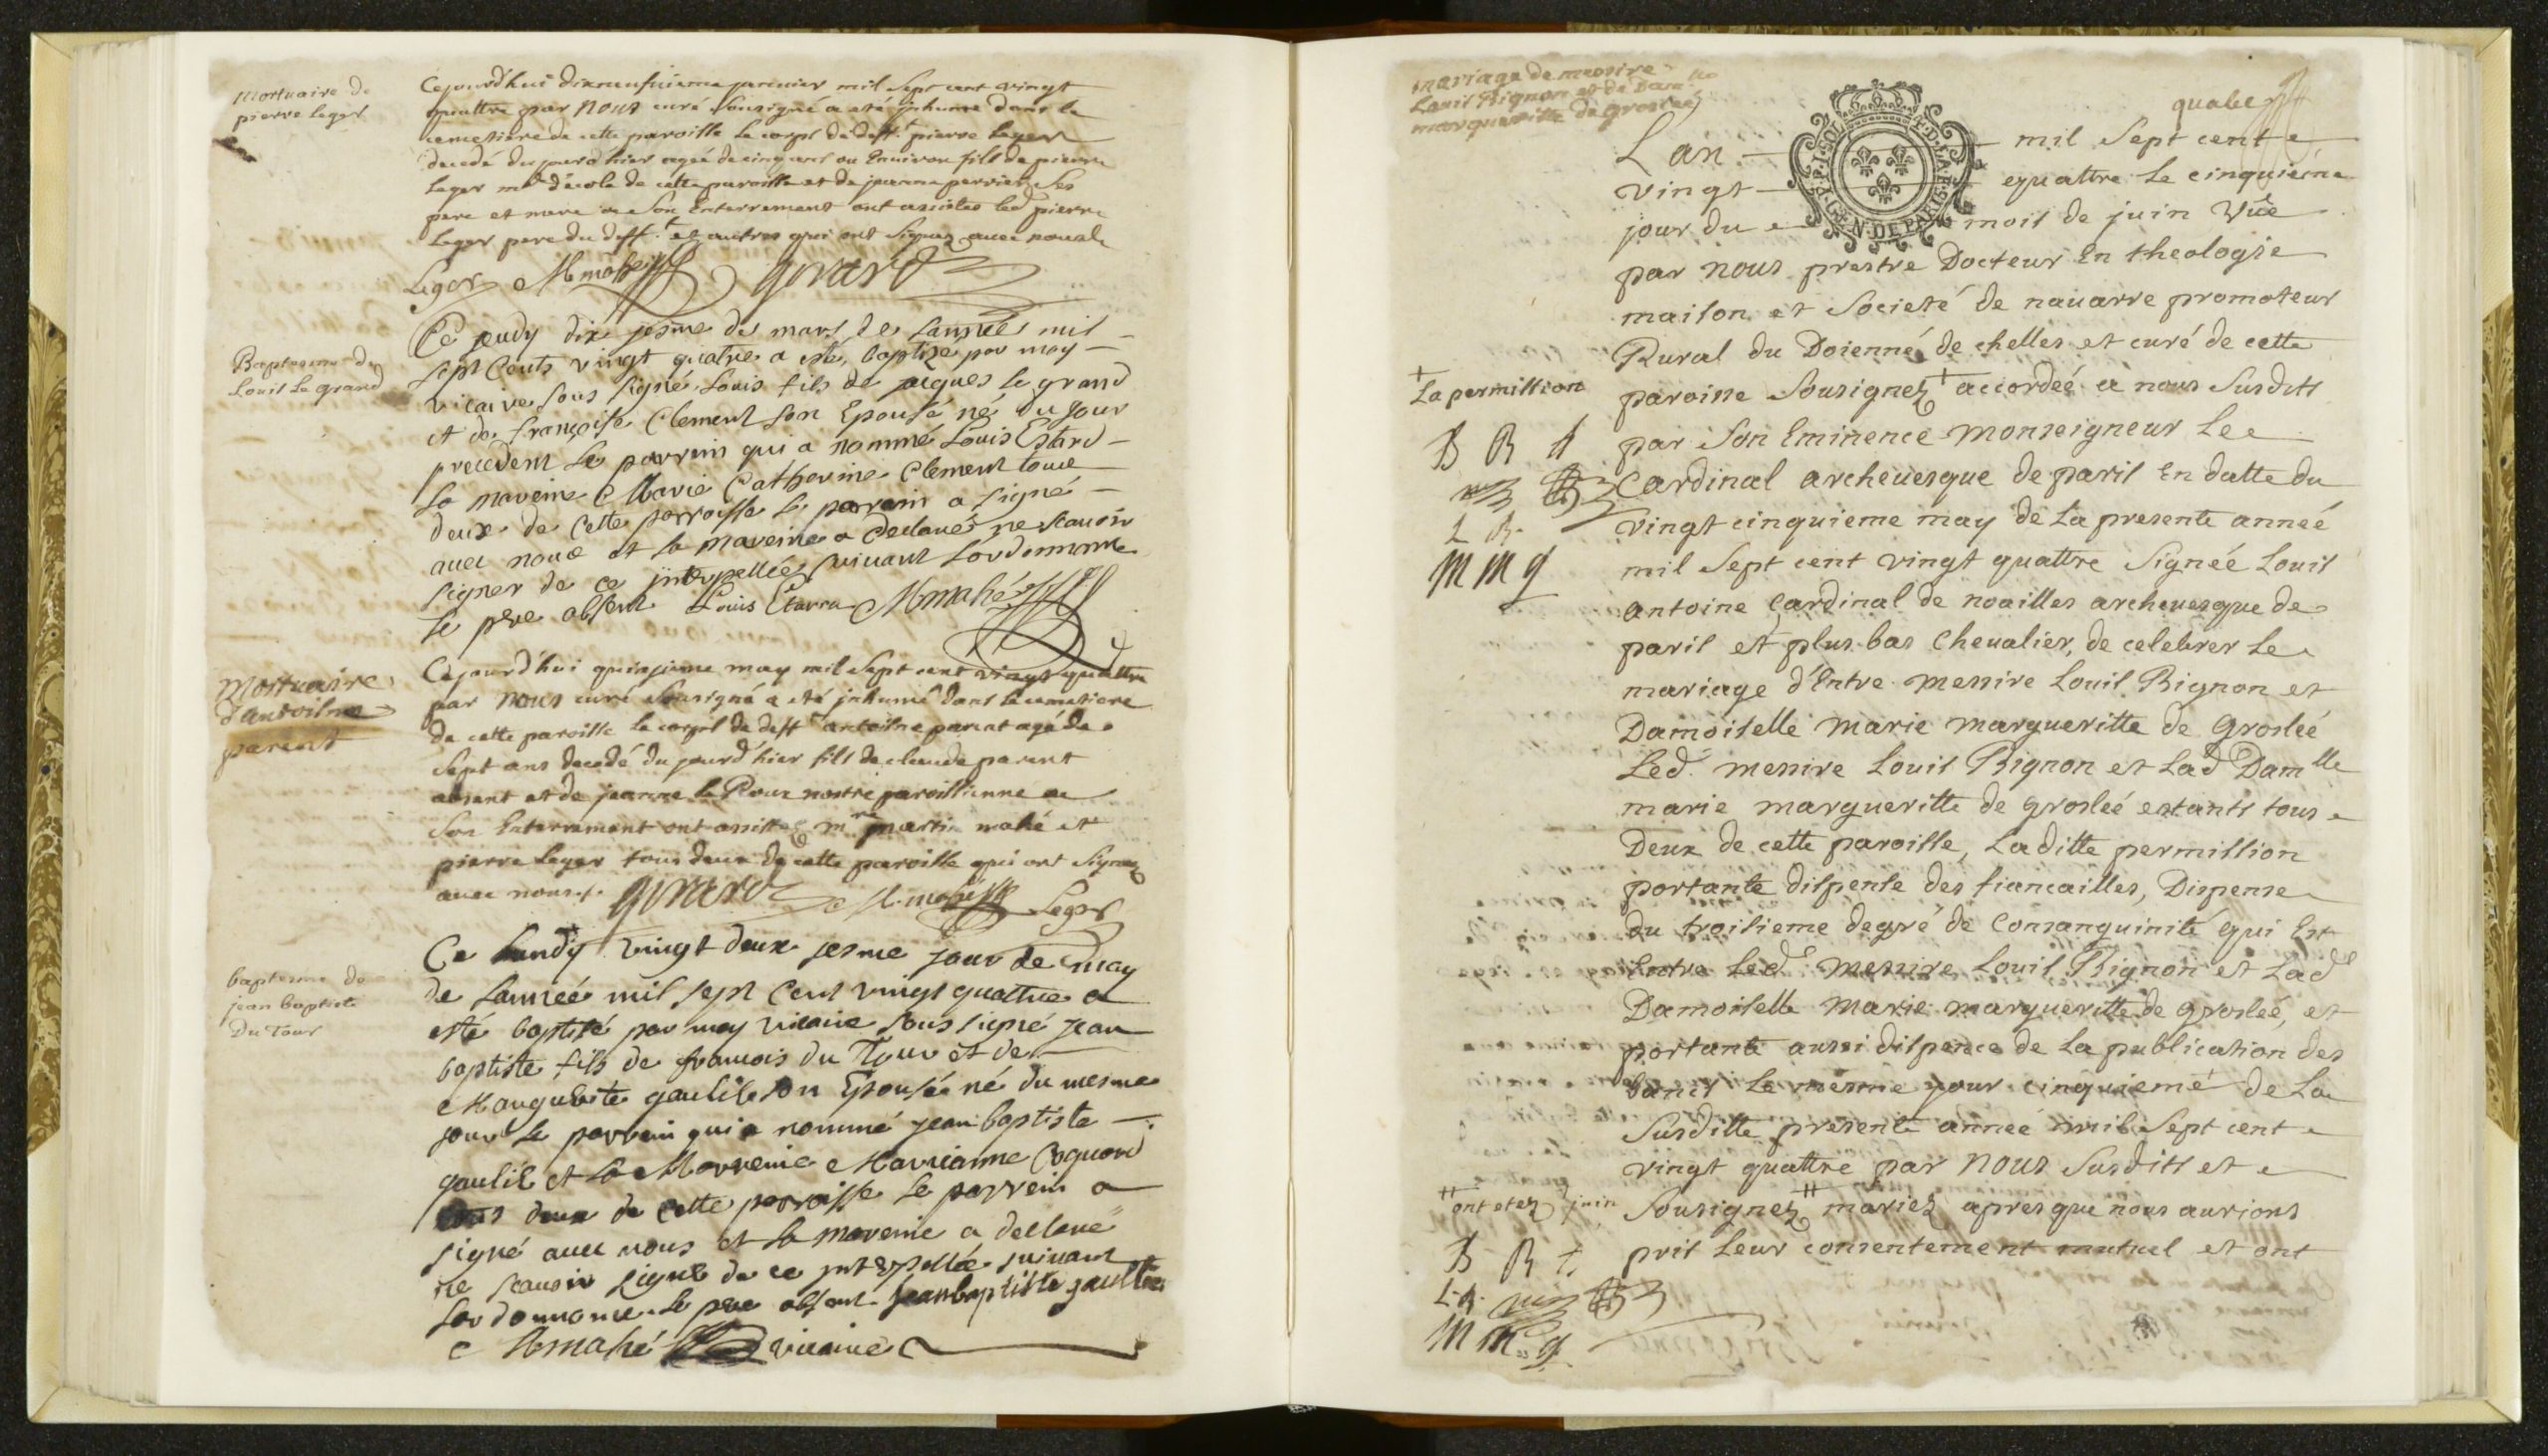 Mortuaire de
pierre leger
Cejourd'hui dixneufvieme janvier mil Sept cent vingt
quattre par nous curé Sousigné a eté jnhumé dans le
cemetiere de cette paroisse le corps de deff.t pierre leger
decedé du jourd'hier agée de cinq ans ou Environ fils de pierre
leger m.e d'école de cette paroisse et de jeanne perrier Ses
pere et mere a Son Enterrement ont assistez led pierre
leger pere du deff.t et autres qui ont Signez avec nous
Leger MMahé girard
Baptesme de
Louis Le grand
Ce jeudy dix jesme de mars de lannée mil
sept Cents vingt quatre a esté baptizé par moy
vicaire sous signé Louis fils de jaques le grand
et de françoise Clement son Epouse né du jour
precedent le parrein qui a nommé Louis Estard
la mareine Marie Catherine Clement tous
deux de Cette parroisse le parrein a signé
avec nous et la mareine a declaré ne scauoir
signer de ce jnterpellée suiuant lordonnance
le pere absent Louis Etarra MMahé
Mortuaire
d'antoisne
parent
Cejourd'hui quinzieme may mil Sept cent vingt quattre
par nous curé Sousigné a eté jnhumé dans le cemetiere
de cette paroisse le corps de deff.t antoisne parent agé de
Sept ans decedé du jourd'hier fils de claude parent
absent et de jeanne le Roux nostre paroissienne a
Son Enterrement ont assistez m.re martin mahé et
pierre leger tous deux de cette paroisse qui ont Signez
avec nous. girard M.mahé Leger
baptesme de
jean baptiste
Du Tour
Ce lundy vingt deux jesme jour de may
de lannée mil sept Cent vingt quattre a
esté baptisé par moy vicaire sous signé jean
baptiste fils de francois du Tour et de
Marguerite gaultie son Epousée né du mesme
jour le parrein qui a nommé jean baptiste
gaultie et la Marreine Marrianne Coquard
tous deux de Cette parroisse le parrein a
signé avec nous et la mareine a declaré
ne scauoir signer de ce jnterpellée suiuant
lordonnance le pere absent jeanbaptiste gaultier
MMahé vicaire
mariage de messire
Louis Bignon et de Dam.lle
marguerite de groslée
L'an mil Sept cent
vingt quattre le cinquième
jour du mois de juin Vüe
par nous prestre Docteur En theologie
maison et Societé de nauarre promoteur
Rural du Doienné de chelles et curé de cette
+
La permission
paroisse Sousignez + accordeé a nous Susdits
B R
par Son Eminence Monseigneur Le
Cardinal archeuesque de paris En datte du
L B.
vingt cinquieme may de La presente anneé
M M g
mil Sept cent vingt quattre Signeé Louis
antoine Cardinal de noailles archeuesque de
paris et plus bas Cheualier, de celebrer Le
mariage d'Entre messire Louis Bignon et
Damoiselle marie margueritte de Grosleé
Led. messire Louis Bignon et Lad Dam.lle
marie margueritte de grosleé estants tous
Deux de cette paroisse, Laditte permission
portante dispense des fiancailles, Dispense
du troisieme degré de Consanguinité qui Est
Entre Led. messire Louis Bignon et Lad
Damoiselle marie margueritte de grosleé, et
portante aussi dispence de La publication des
bancs Le mesme jour cinquieme de La
Susditte presente anneé mil Sept cent
vingt quattre par nous Susdits et
++
ont etez juin
Sousignez ++ mariez apres que nous aurions
B R
pris Leur consentement mutuel et ont
M M. g